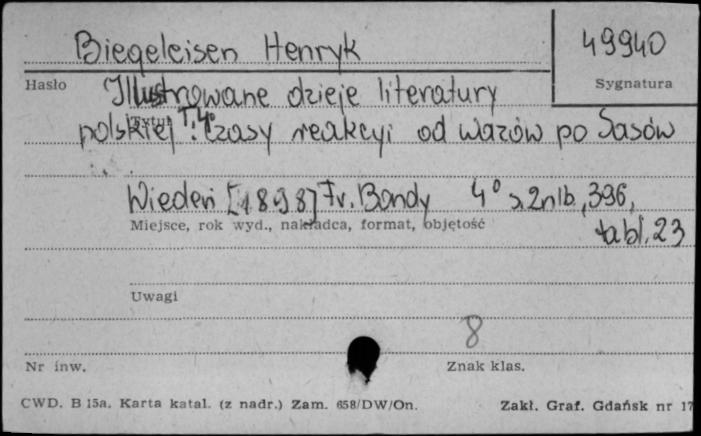 Biegeleisen Henryk
49940
Hasło
Sygnatura
Illustrowane dzieje literatury
polskiej T. 4: Czasy reakcyi od Wazów po Sasów
Tytuł
Wiedeń [1898] Fr. Bondy 4° s. 2nlb, 396,
Miejsce, rok wyd., nakładca, format, objętość
tabl. 23
Uwagi
8
Nr inw.
Znak klas.
CWD. B 15a. Karta katal. (z nadr.) Zam. 658/DW/On.
Zakł. Graf. Gdańsk nr 17